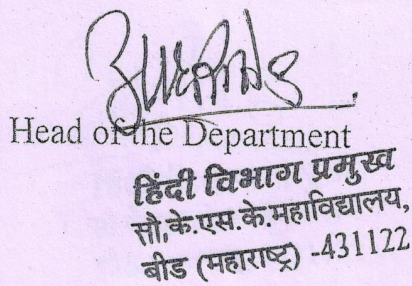 Head of the Department
हिंदी विभाग प्रमुख
सौ,के.एस.के.महाविद्यालय,
बीड (महाराष्ट्र) -431122